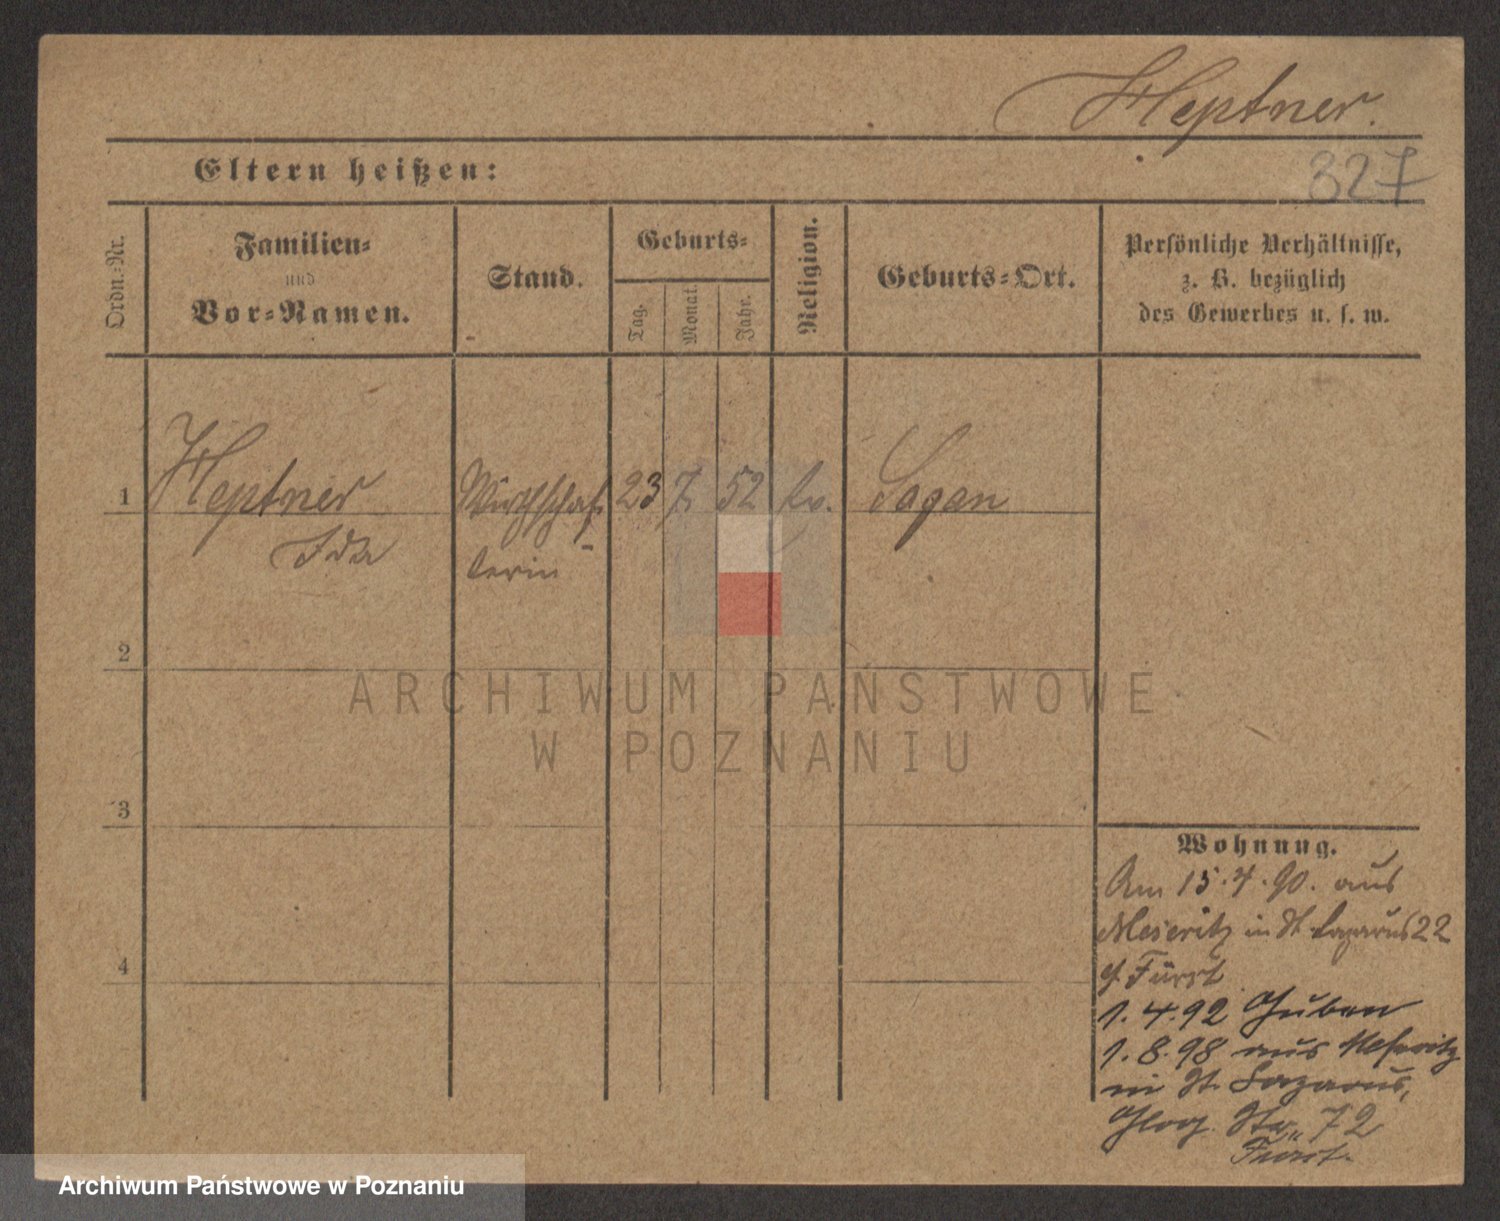 Heptner.
Eltern heißen:
327
Ordn.-Nr.
Familien-
und
Vor-Namen.
Stand.
Geburts-
Tag.
Monat.
Jahr.
Religion.
Geburts-Ort.
Persönliche Verhältnisse,
z. B. bezüglich
des Gewerbes u. s. w.
1 Heptner Wirthschaf- 23 7. 52 ev. Sagan
Ida terin
2
ARCHIWUM PAŃSTWOWE
W POZNANIU
3
Wohnung.
Am 15.4.90. aus
Meseritz in St. Lazarus 22
Fürst
4
1.4.92 Guben
1.8.98 aus Meseritz
in St. Lazarus,
Glog. Str. 72
Fürst.
Archiwum Państwowe w Poznaniu